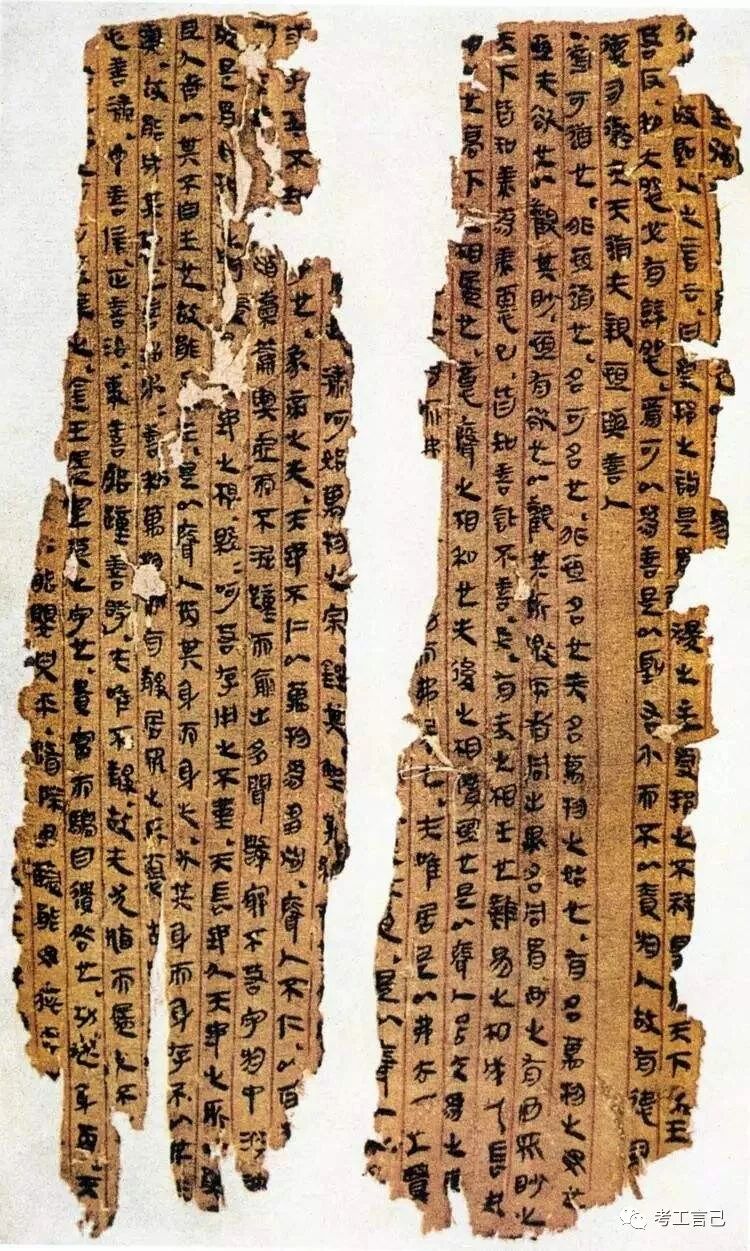 故聖人之言云曰受邦之詬是胃稷之主受邦之不祥是胃天下之王
若反和大怨必有餘怨焉可以為善是以聖右介而不以責於人故有德司
德司徹夫天道无親恒與善人
道可道也非恒道也名可名也非恒名也无名萬物之始也有名萬物之母也
恒无欲也以觀其眇恒有欲也以觀其所噭兩者同出異名同胃玄之有玄眾眇之
天下皆知美為美惡已皆知善訾不善矣有无之相生也難易之相成也長短
也高下之相盈也意聲之相和也先後之相隋恒也是以聲人居无為之事
而弗也夫唯居是以弗去不上賢
是以聲人
潚呵始萬物之宗銼其
也象帝之先天地不仁以萬物為芻狗聲人不仁以百
猶橐籥輿虛而不淈蹱而俞出多聞數窮不若守於中浴神
是胃地之根緜緜呵若存用之不堇天長地久天地之所以
且久者以其不自生也故能長生是以聲人芮其身而身先外其身而身存不以其
與故能成其私上善治水水善利萬物而有靜居眾之所惡故
善瀟予善信正善治事善能蹱善時夫唯不靜故无尤揰而盈之不
之金玉盈室莫之守也貴富而驕自遺咎也功述身芮天
能嬰兒乎脩除玄藍能毋疵乎
考工言己